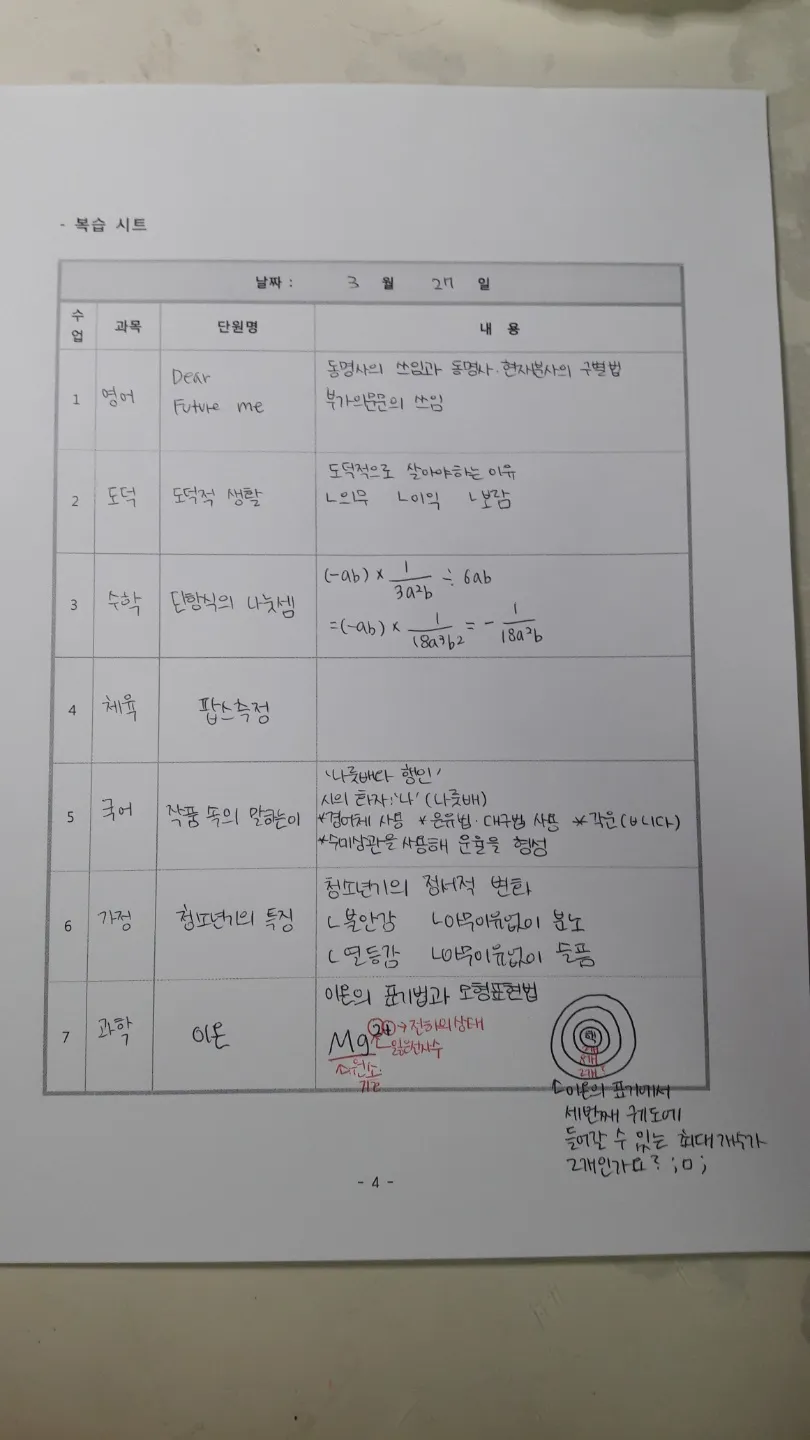 - 복습 시트
날짜 : 3 월 27 일
수업 과목 단원명 내 용
1 영어 Dear Future me
동명사의 쓰임과 동명사·현재분사의 구별법
부가의문문의 쓰임
2 도덕 도덕적 생활
도덕적으로 살아야하는 이유
ㄴ의무 ㄴ이익 ㄴ보람
3 수학 단항식의 나눗셈
(-ab) × 1/3a²b ÷ 6ab
=(-ab) × 1/18a³b² = - 1/18a²b
4 체육 팝스측정
5 국어 작품 속의 말하는이
'나룻배다 행인'
시의 화자:'나' (나룻배)
*경어체 사용 *은유법·대구법 사용 *각운(ㅂ니다)
*수미상관을 사용해 운율을 형성
6 가정 청소년기의 특징
청소년기의 정서적 변화
ㄴ불안감 ㄴ아무이유없이 분노
ㄴ열등감 ㄴ아무이유없이 슬픔
7 과학 이온
이온의 표기법과 모형표현법
Mg2+ → 전하의상태
잃은전자수
원소
기호
핵
2개
8개
2개?
ㄴ이온의 표기에서
세번째 궤도에
들어갈 수 있는 최대개수가
2개인가요? ;ㅁ;
- 4 -